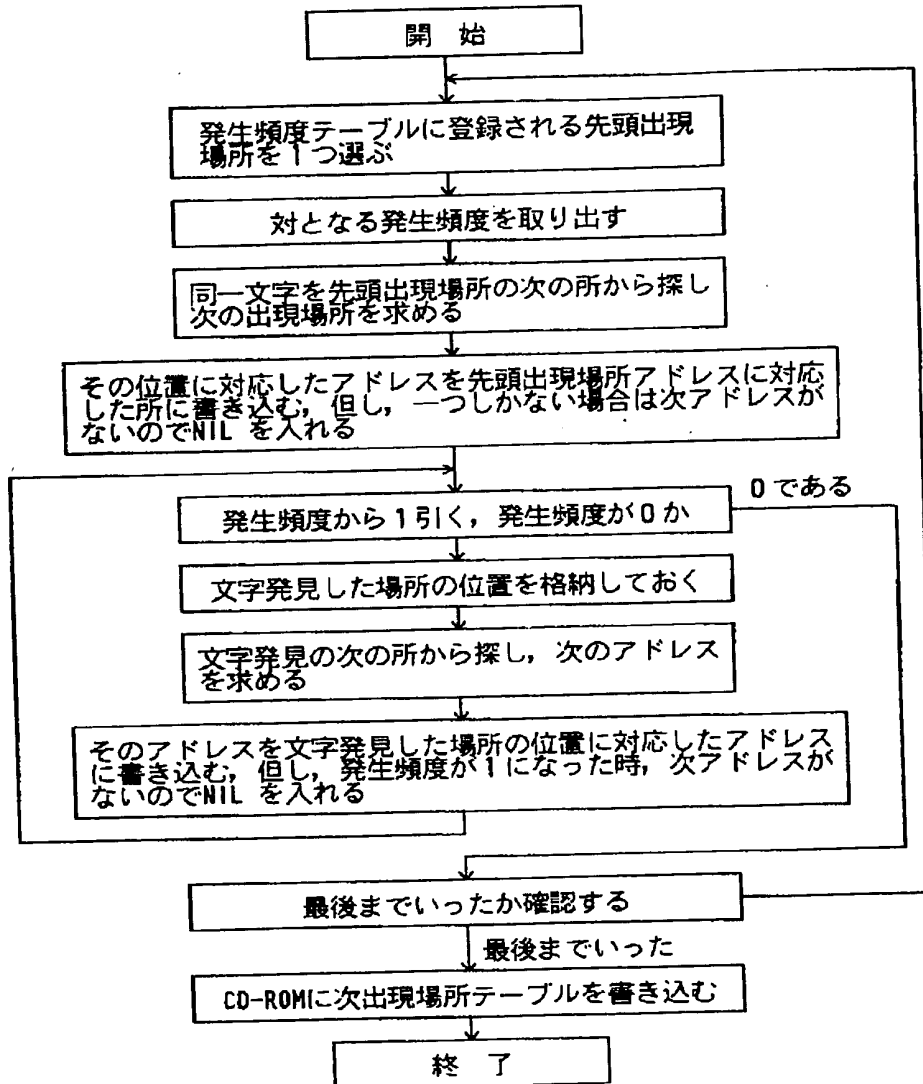 開 始
発生頻度テーブルに登録される先頭出現
場所を1つ選ぶ
対となる発生頻度を取り出す
同一文字を先頭出現場所の次の所から探し
次の出現場所を求める
その位置に対応したアドレスを先頭出現場所アドレスに対応
した所に書き込む,但し,一つしかない場合は次アドレスが
ないのでNIL を入れる
0である
発生頻度から1引く,発生頻度が0か
文字発見した場所の位置を格納しておく
文字発見の次の所から探し,次のアドレス
を求める
そのアドレスを文字発見した場所の位置に対応したアドレス
に書き込む,但し,発生頻度が1になった時,次アドレスが
ないのでNIL を入れる
最後までいったか確認する
最後までいった
CD-ROMに次出現場所テーブルを書き込む
終 了